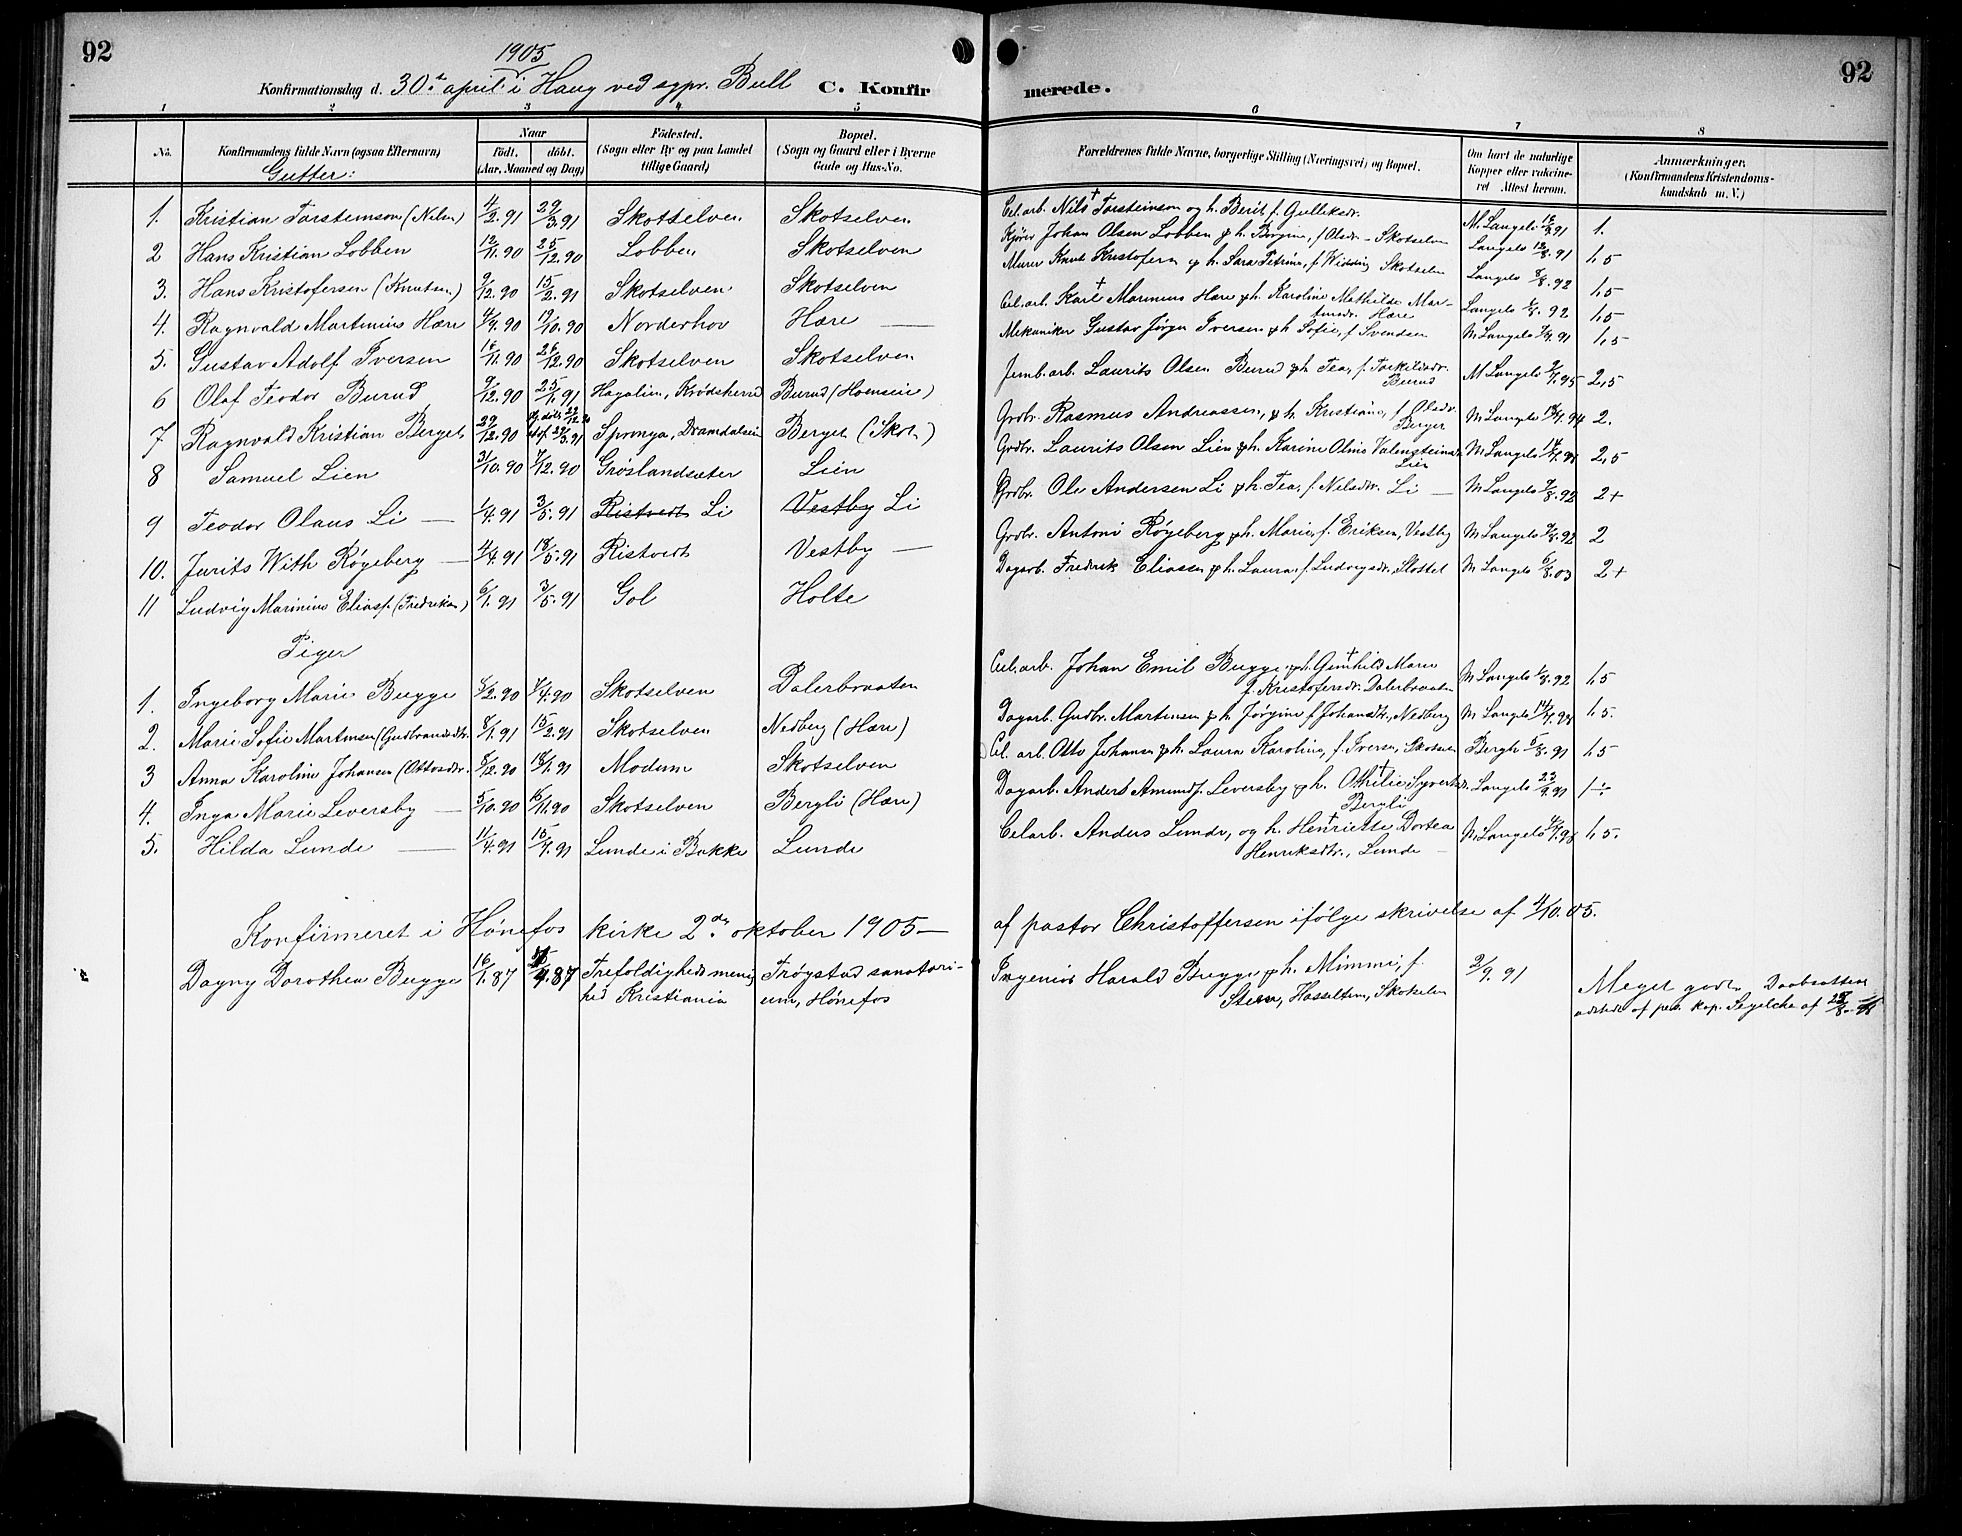 92
1905
Konfirmationsdag d. 30te april i Haug ved sgpr. Bull C. Konfir
merede.
92
1 2 3 4 5
6 7 8
No. Konfirmandens fulde Navn (ogsaa Efternavn) Naar Födt. döbt. (Aar, Maaned og Dag) Födested. (Sogn eller By og paa Landet tillige Gaard) Bopæl. (Sogn og Gaard eller i Byerne Gade og Hus-No.
Forældrenes fulde Navne, borgerlige Stilling (Næringsvei) og Bopæl. Om havt de naturlige Kopper eller vakcineret Attest herom. Anmærkninger. (Konfirmandens Kristendomskundskab m. V.)
Gutter:
1. Kristian Torsteinson (Nilsen) 4/2.91 29/3.91 Skotselven Skotselven Cel. arb. Nils † Torsteinson og h. Berit f. Gulliksdr. M. Langelo 91 1.
2 Hans Kristian Lobben 12/11.90 25/12.90 Lobben Skotselven Kjører Johan Olsen Lobben & h. Borgine, f. Olsdr. - Skotselven Langelo 12/8.91 1,5
3. Hans Kristofersen (Knutsen) 9/12.90 15/2.91 Skotselven Skotselven Murer Knut Kristofersen & h. Sara Petrine, f. Widding Skotselven Langelo 8/8.92 1,5
4. Ragnvald Martinius Hære 4/9.90 19/10.90 Norderhov Hære — Cel. arb. Karl † Marinius Hære & h. Karoline Mathilde Martinsdr. Hære Langelo 92 1,5
5. Gustav Adolf Iversen 16/11.90 26/12.90 Skotselven Skotselven Mekaniker Gustav Jörgen Iversen & h. Sofie, f. Svendsen M Langelo 91 1,5
6 Olaf Teodor Burud 9/12.90 25/1.91 Hagalien, Krødsherred Burud (Hoenseie) Jernb. arb. Laurits Olsen Burud & h. Tea, f. Torkildsdr. Burud M Langelo 95 2,5
7 Ragnvald Kristian Berget 29/12.90 Spronga, Dramdalseie Berget (Skot.) Grdbr. Rasmus Andreassen, & h. Kristiane, f. Olsdr. Berget M Langelo 94 2.
8 Samuel Lien 3/10.90 7/12.90 Grøslandsæter Lien Grdbr. Laurits Olsen Lien & h. Karine Oline Valenteinsdr. Lien M Langelo 2,5
9 Teodor Olaus Li — 1/4.91 3/5.91 Ristvedt Li Vestby Li Grdbr. Ole Andersen Li & h. Tea, f. Nilsdr. Li — M Langelo 92 2+
10. Jurits With Røgeberg — 4/4.91 18/5.91 Ristvedt Vestby — Grdbr. Antoni Røgeberg & h. Marie, f. Eriksen, Vestby M Langelo 92 2
11 Ludvig Marinius Eliasf. (Fredriksen) 6/1.91 3/5.91 Gol Holte Dagarb. Fredrik Eliassen & h. Laura f. Ludvigsdr. Slottet M Langelo 6/8.03 2+
Piger
1. Ingeborg Marie Bugge 8/2.90 7/4.90 Skotselven Dalerbraaten Cel. arb. Johan Emil Bugge & h. Gunhild † Marie f. Kristofersdr. Dalerbraaten M Langelo 92 1,5
2. Marie Sofie Martinsen (Gudbrandsdtr. 8/1.91 15/2.91 Skotselven Nedberg (Hære) Dagarb. Gudbr. Martinsen & h. Jørgine f. Johansdtr., Nedberg M Langelo 1,5.
3 Anna Karoline Johansen (Ottosdtr. 8/12.90 18/1.91 Modum Skotselven Cel. arb. Otto Johansen & h. Laura Karoline, f. Iversen, Skotselven Bergh 5/8.91 1,5
4. Inga Marie Leversby — 5/10.90 16/11.90 Skotselven Bergli (Hære) Dagarb. Anders Amundf. Leversby & h. Othilie † Syvertsdr. Bergli Langelo 23/9.91 1÷
5. Hilda Lunde — 11/4.91 15/7.91 Lunde i Bakke Lunde Celarb. Anders Lunde, og h. Henriette † Dortea Henriksdtr., Lunde — M. Langelo 1,5.
Konfirmeret i Hønefos kirke 2den oktober 1905 — af pastor Christoffersen ifölge skrivelse af 4/10.05.
Dagny Dorothea Bugge 16/1.87 Trefoldigheds menighed Kristiania Frøgstad sanatorium, Hønefos Ingeniør Harald Bugge & h. Mimmi, f. Steen, Hasseltun, Skotselven 2/9.91 Meget godt. Daabsattest udstedt af pers. kap. Segelcke af